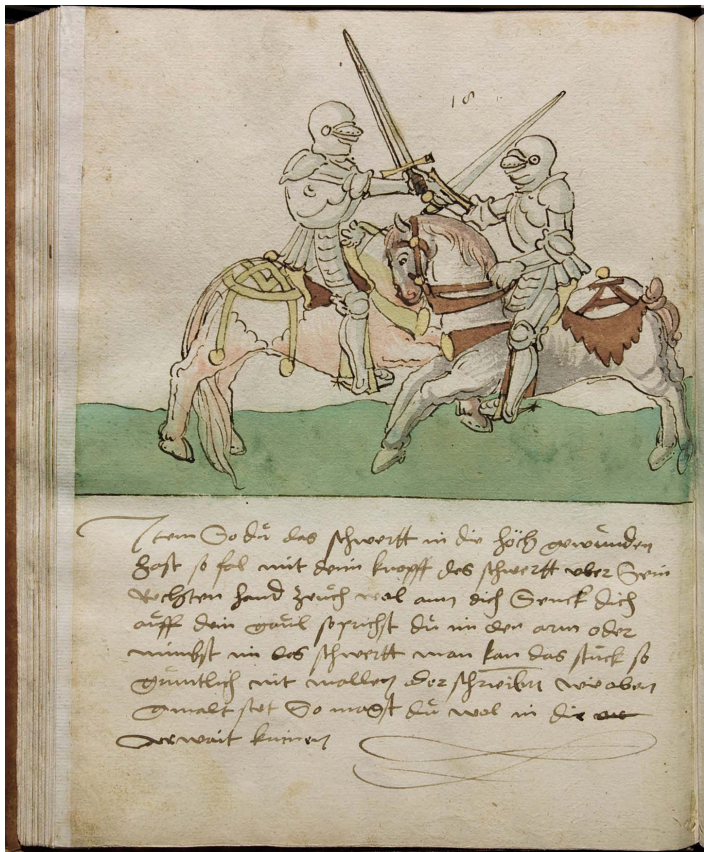 18
Item So dů das schwertt in die höch gewunden
hast so fal mit deim knopff des schwertt vber Sein
Rechten hand zeuch wol ann dich Senck dich
auff dein gaul so prichst dů im den arm oder
nimbst im das schwertt man kan das stuck so
grüntlich nit mallen der schreiben wie oben
gmalt stet So magst dů wol in die
arwait kumen